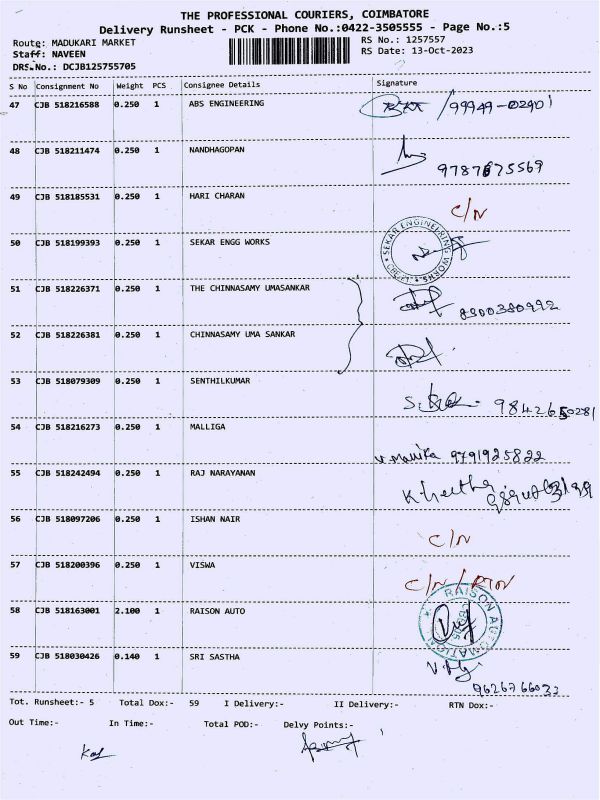 THE PROFESSIONAL COURIERS, COIMBATORE
Delivery Runsheet - PCK - Phone No.:0422-3505555 - Page No.:5
Route: MADUKARI MARKET RS No.: 1257557
Staff: NAVEEN RS Date: 13-Oct-2023
DRS.No.: DCJB125755705
S No Consignment No Weight PCS Consignee Details Signature
47 CJB 518216588 0.250 1 ABS ENGINEERING 99949-02901
48 CJB 518211474 0.250 1 NANDHAGOPAN
9787675569
49 CJB 518185531 0.250 1 HARI CHARAN C/N
50 CJB 518199393 0.250 1 SEKAR ENGG WORKS SEKAR ENGINEERING WORKS
51 CJB 518226371 0.250 1 THE CHINNASAMY UMASANKAR 8900380992
52 CJB 518226381 0.250 1 CHINNASAMY UMA SANKAR
53 CJB 518079309 0.250 1 SENTHILKUMAR
9842650281
54 CJB 518216273 0.250 1 MALLIGA
9791925822
55 CJB 518242494 0.250 1 RAJ NARAYANAN
56 CJB 518097206 0.250 1 ISHAN NAIR C/N
57 CJB 518200396 0.250 1 VISWA C/N / RTN
58 CJB 518163001 2.100 1 RAISON AUTO RAISON AUTOMATION
59 CJB 518030426 0.140 1 SRI SASTHA
9626766033
Tot. Runsheet:- 5 Total Dox:- 59 I Delivery:- II Delivery:- RTN Dox:-
Out Time:- In Time:- Total POD:- Delvy Points:-